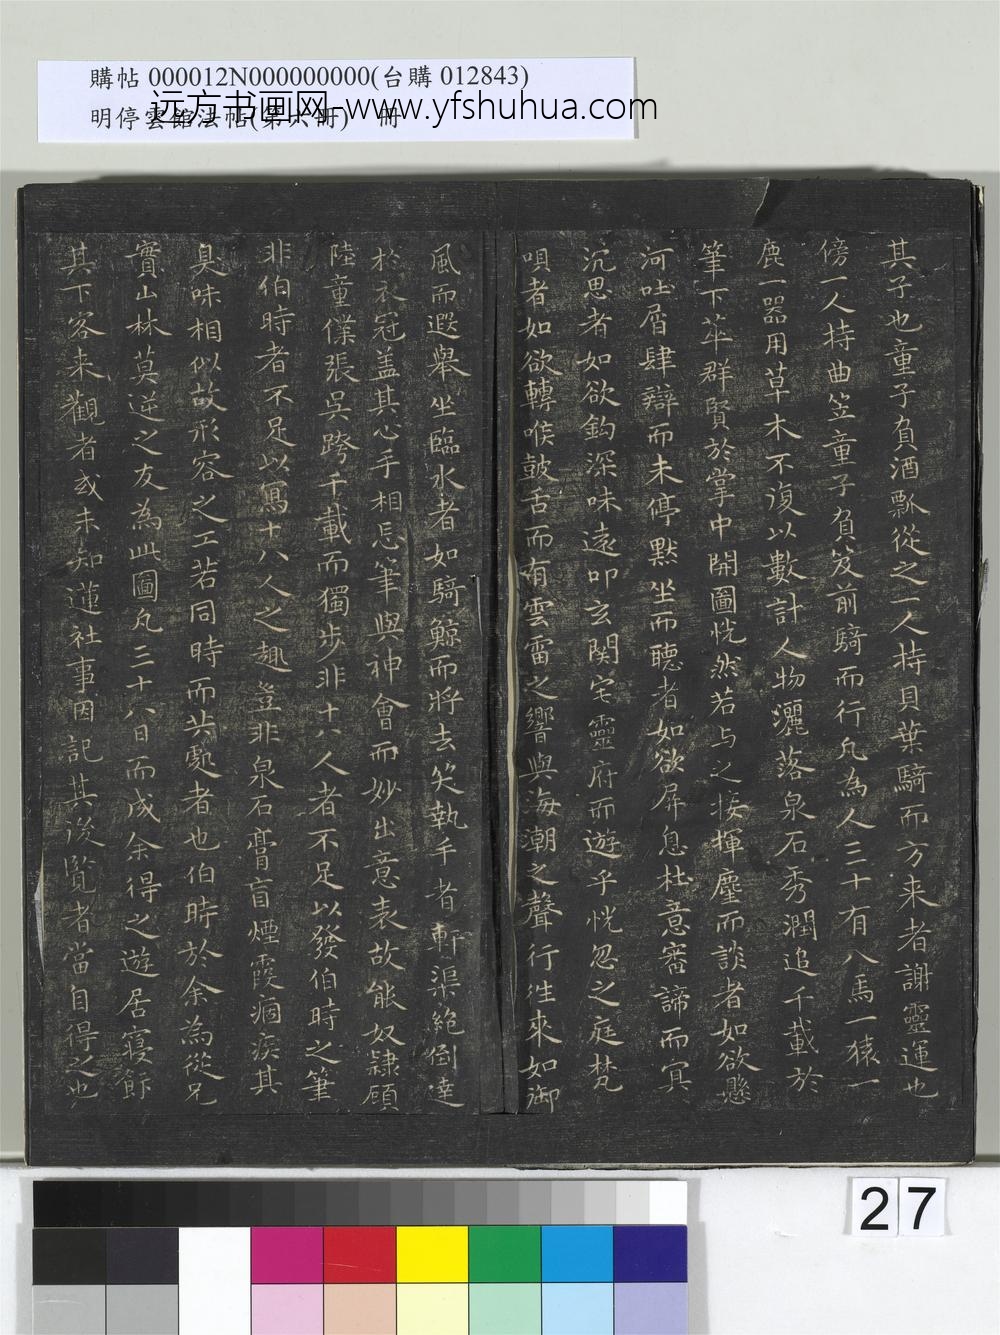 購帖 000012N000000000(台購 012843)
明停雲館法帖(第六冊) 冊
远方书画网-www.yfshuhua.com
其子也童子負酒瓢從之一人持貝葉騎而方来者謝靈運也
傍一人持曲笠童子負笈前騎而行凡為人三十有八馬一猿一
鹿一器用草木不復以數計人物灑落泉石秀潤追千載於
筆下萃群賢於掌中開圖恍然若与之接揮麈而談者如欲懸
河吐屑肆辯而未停默坐而聽者如欲屏息杜意審諦而冥
沉思者如欲鈎深味遠叩玄関宅靈府而遊乎恍忽之庭梵
唄者如欲轉喉鼓舌而有雲雷之響與海潮之聲行徃來如御
風而遐舉坐臨水者如騎鯨而將去笑執手者軒渠絶倒達
於衣冠盖其心手相忘筆與神會而妙出意表故能奴隷顧
陸童僕張吳跨千載而獨步非十八人者不足以發伯時之筆
非伯時者不足以寫十八人之趣豈非泉石膏肓煙霞痼疾其
臭味相似故形容之工若同時而共處者也伯時於余為從兄
實山林莫逆之友為此圖凡三十八日而成余得之遊居寢飭
其下客来觀者或未知蓮社事因記其後覧者當自得之也
27